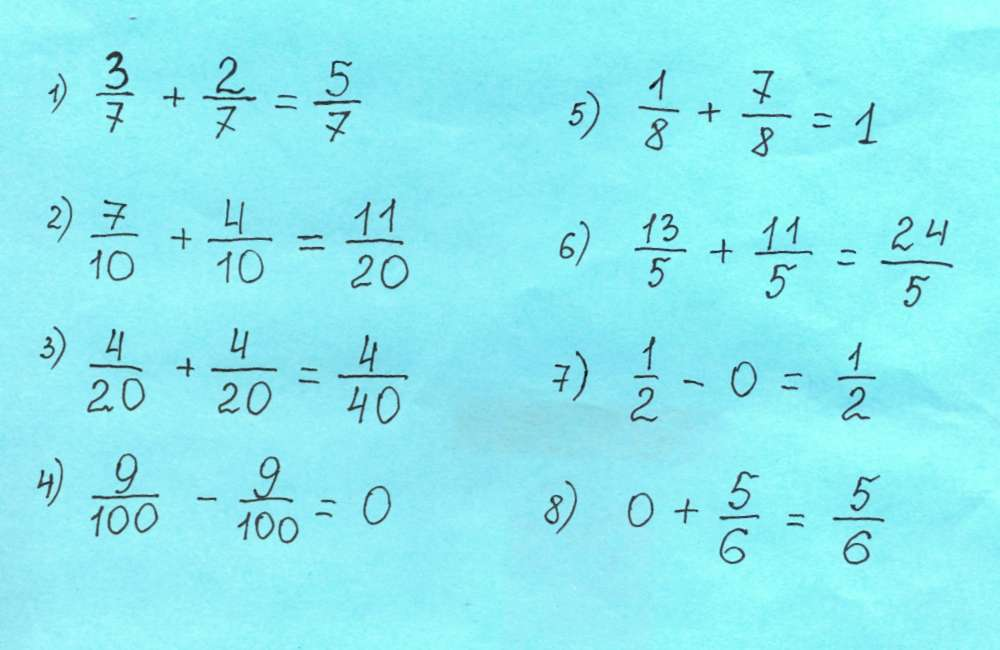 1) 3/7 + 2/7 = 5/7
2) 7/10 + 4/10 = 11/20
3) 4/20 + 4/20 = 4/40
4) 9/100 - 9/100 = 0
5) 1/8 + 7/8 = 1
6) 13/5 + 11/5 = 24/5
7) 1/2 - 0 = 1/2
8) 0 + 5/6 = 5/6